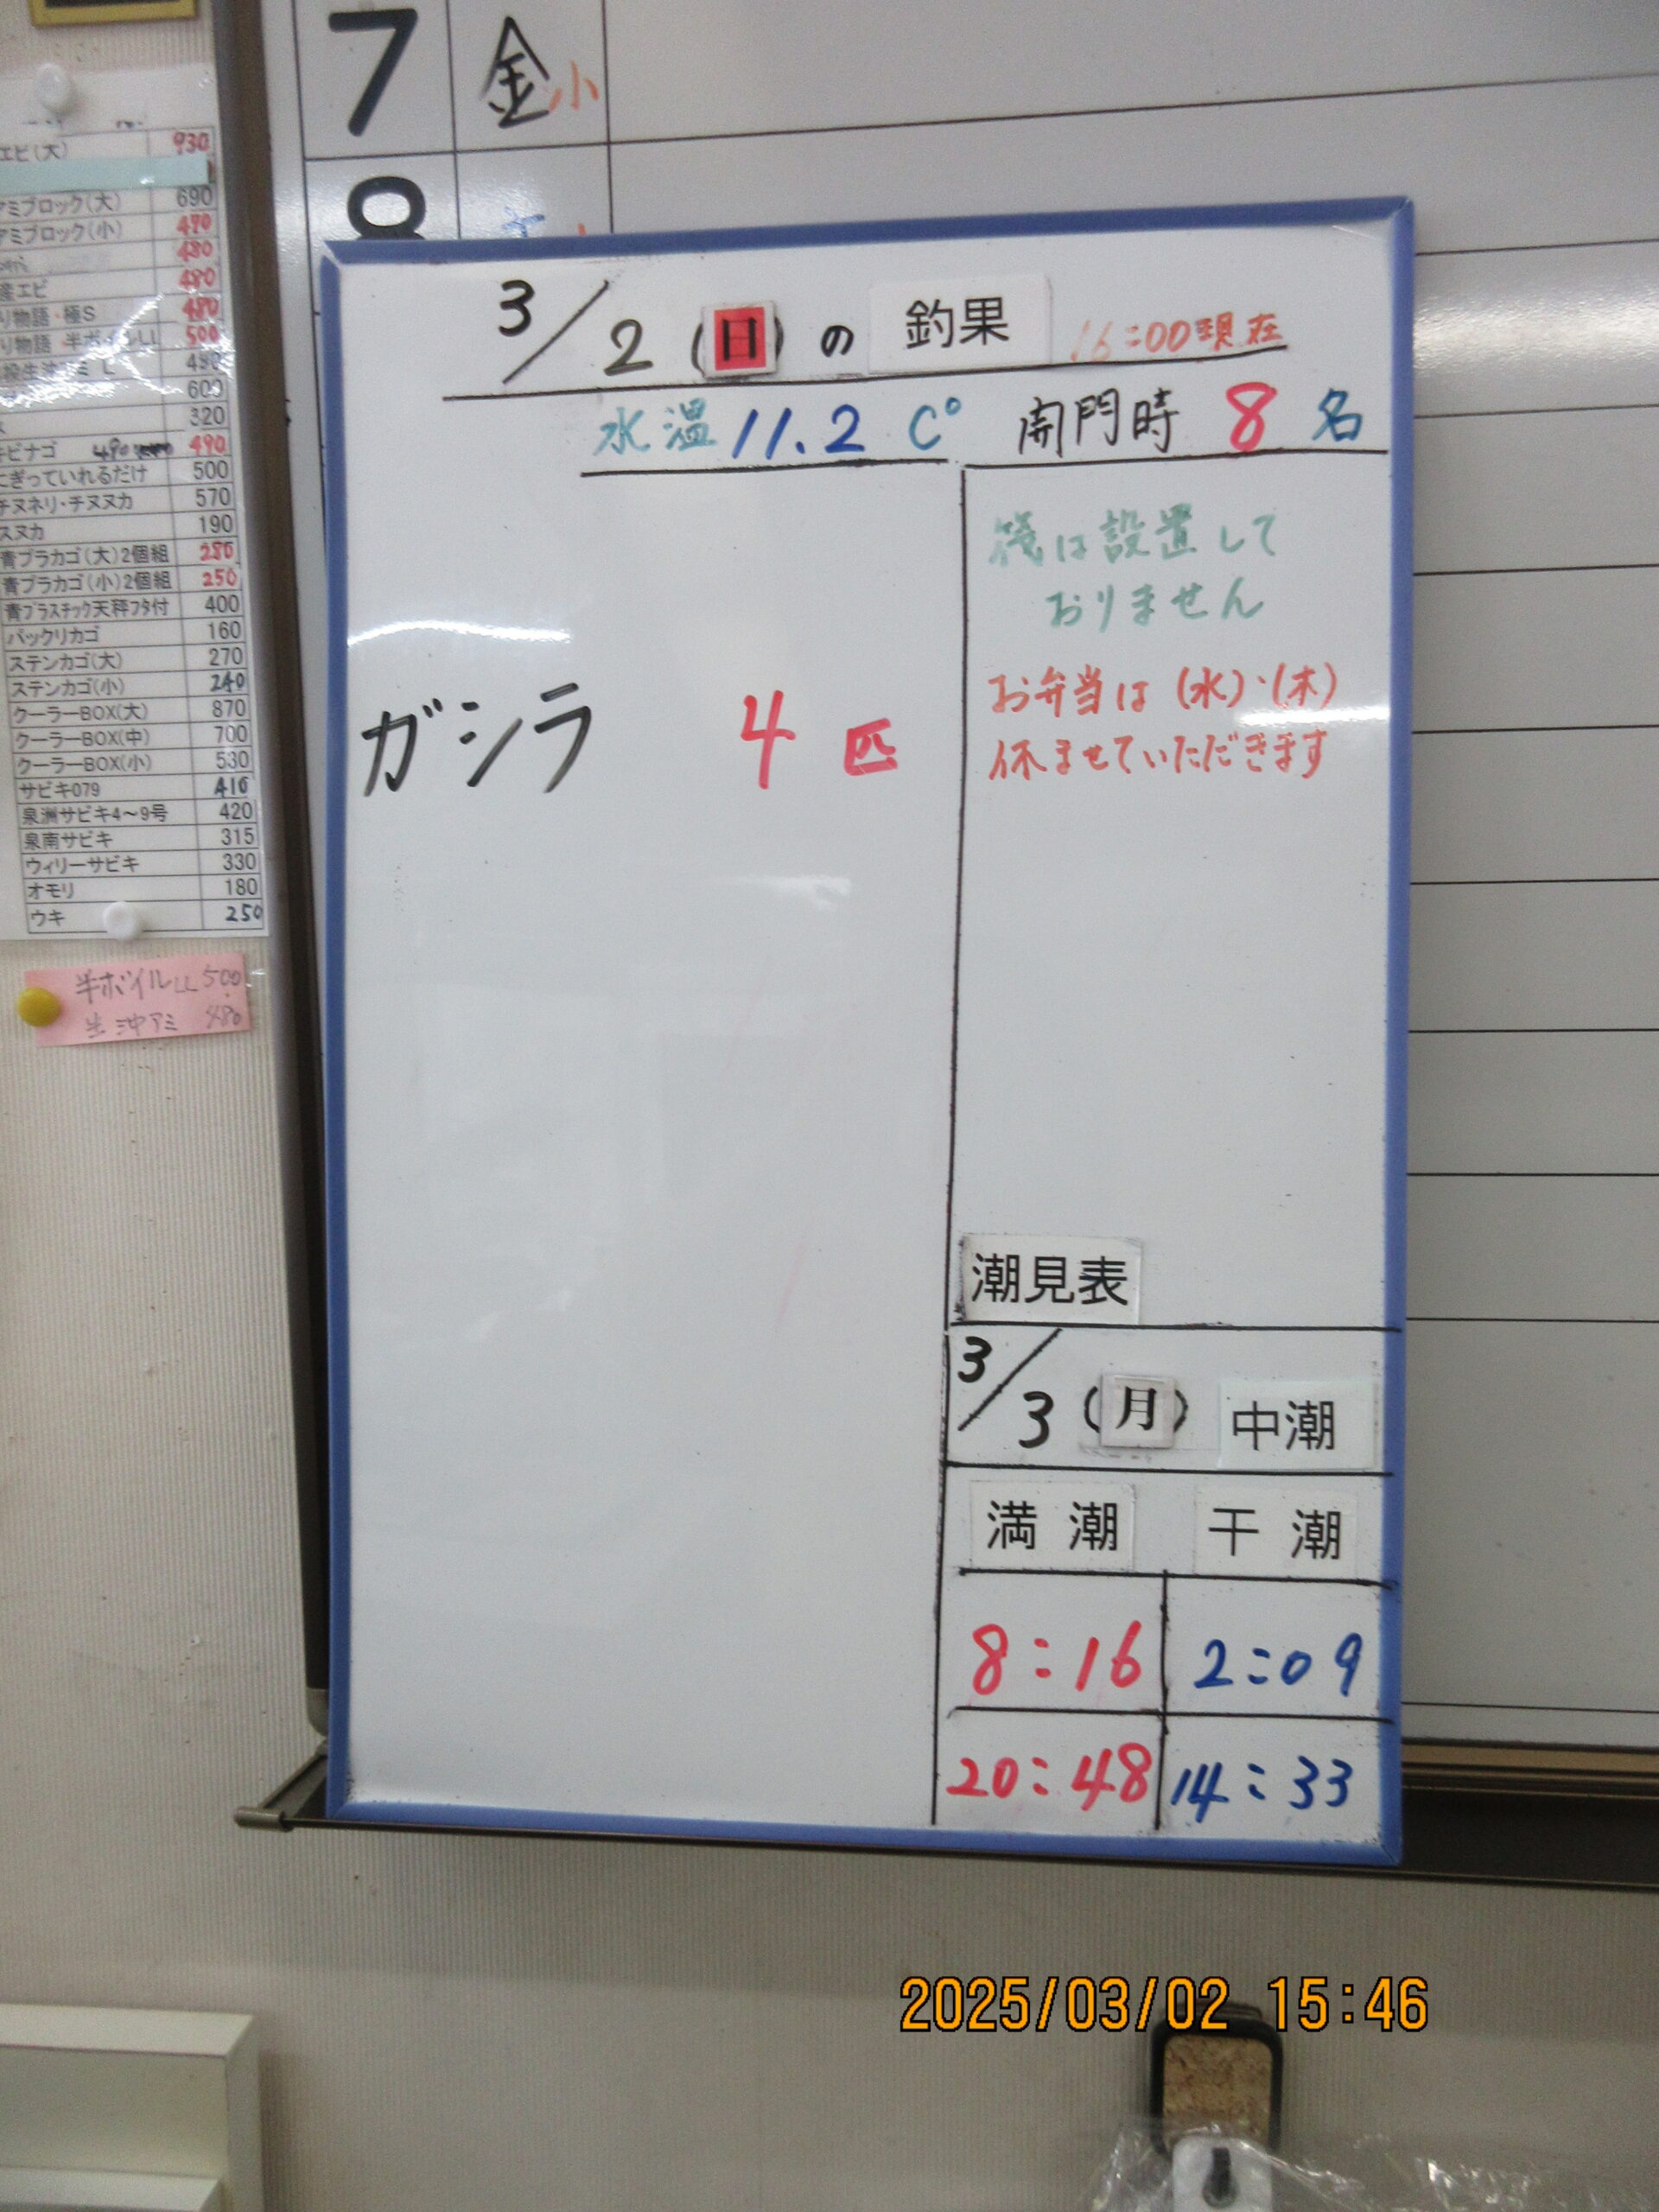 7 金 小
8
エビ(大) 930
アミブロック(大) 690
アミブロック(小) 470
480
産エビ 480
り物語・極S 480
り物語 半ボイルLL 500
490
600
320
キビナゴ 490
にぎっていれるだけ 500
チヌネリ・チヌヌカ 570
スヌカ 190
青プラカゴ(大)2個組 280
青プラカゴ(小)2個組 250
青プラスチック天秤フタ付 400
パックリカゴ 160
ステンカゴ(大) 270
ステンカゴ(小) 240
クーラーBOX(大) 870
クーラーBOX(中) 700
クーラーBOX(小) 530
サビキ079 410
泉洲サビキ4～9号 420
泉南サビキ 315
ウィリーサビキ 330
オモリ 180
ウキ 250
半ボイルLL 500
生沖アミ 480
3/2(日)の 釣果 16:00現在
水温 11.2 C° 開門時 8名
筏は設置して
おりません
お弁当は(水)・(木)
休ませていただきます
ガシラ 4匹
潮見表
3/3(月) 中潮
満潮 干潮
8:16 2:09
20:48 14:33
2025/03/02 15:46